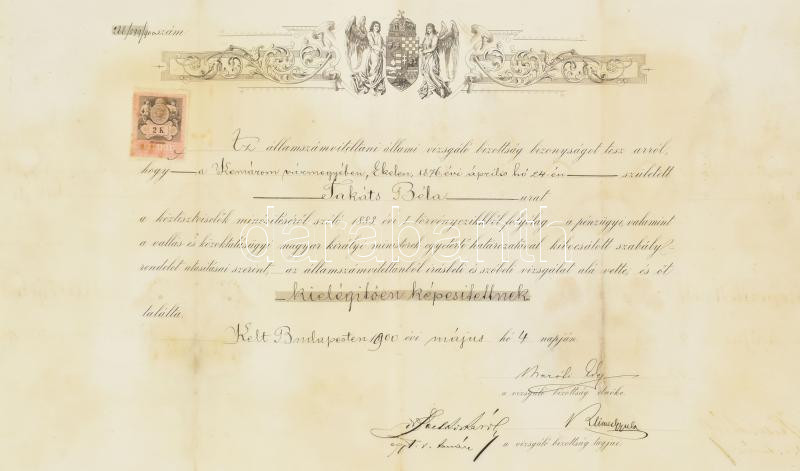 szám
2 K
Az államszámviteltani állami vizsgáló bizottság bizonyságot tesz arról,
hogy a Komárom vármegyében, Ekelen, 1876 évi április hó 24 én született
Takáts Béla urat
a köztisztviselők minősítéséről szóló 1883 évi I. törvényczikkből folyólag a pénzügyi, valamint
a vallás és közoktatásügyi magyar királyi ministerek egyetértő határozatával kibocsátott szabály-
rendelet utasításai szerint, az államszámviteltanból írásbeli és szóbeli vizsgálat alá vette, és őt
kielégítően képesítettnek
találta.
Kelt Budapesten 1900 évi május hó 4 napján
a vizsgáló bizottság elnöke.
a vizsgáló bizottság tagjai.
darabanth